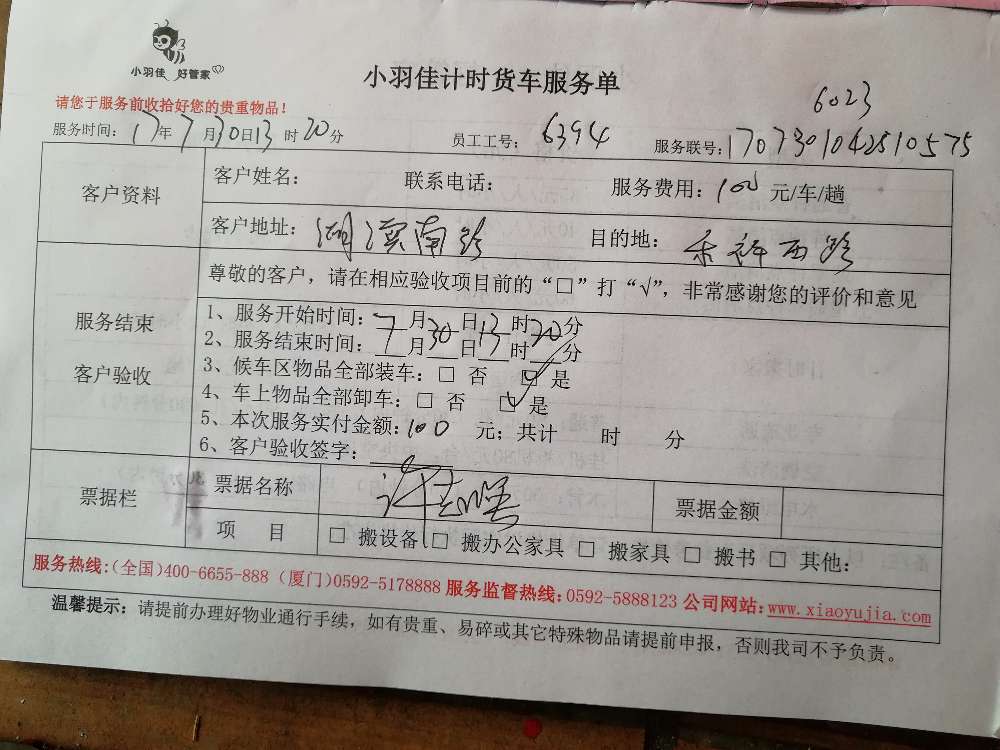 小羽佳 好管家
小羽佳计时货车服务单
6023
请您于服务前收拾好您的贵重物品!
服务时间: 17年7月30日13时20分 员工工号: 6394 服务联号: 170730104281 0575
客户资料
客户姓名: 联系电话: 服务费用: 100 元/车/趟
客户地址: 湖滨南路 目的地: 禾祥西路
服务结束
客户验收
尊敬的客户，请在相应验收项目前的“□”打“√”，非常感谢您的评价和意见
1、服务开始时间: 7月30日13时20分
2、服务结束时间: 月30日13时 分
3、候车区物品全部装车: □ 否 ☑ 是
4、车上物品全部卸车: □ 否 ☑ 是
5、本次服务实付金额: 100 元; 共计 时 分
6、客户验收签字:
票据栏
票据名称 票据金额
项 目 □ 搬设备 □ 搬办公家具 □ 搬家具 □ 搬书 □ 其他:
服务热线:(全国)400-6655-888 (厦门)0592-5178888 服务监督热线:0592-5888123 公司网站:www.xiaoyujia.com
温馨提示: 请提前办理好物业通行手续，如有贵重、易碎或其它特殊物品请提前申报，否则我司不予负责。